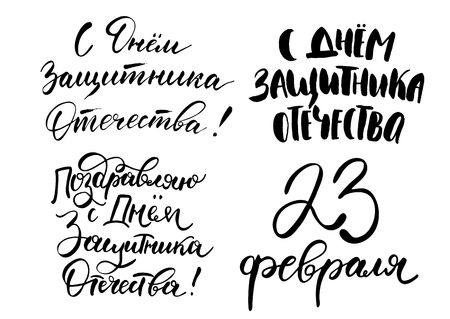 С Днём
Защитника
Отечества!
С ДНЁМ
ЗАЩИТНИКА
ОТЕЧЕСТВА
Поздравляю
с Днём
Защитника
Отечества!
23
февраля